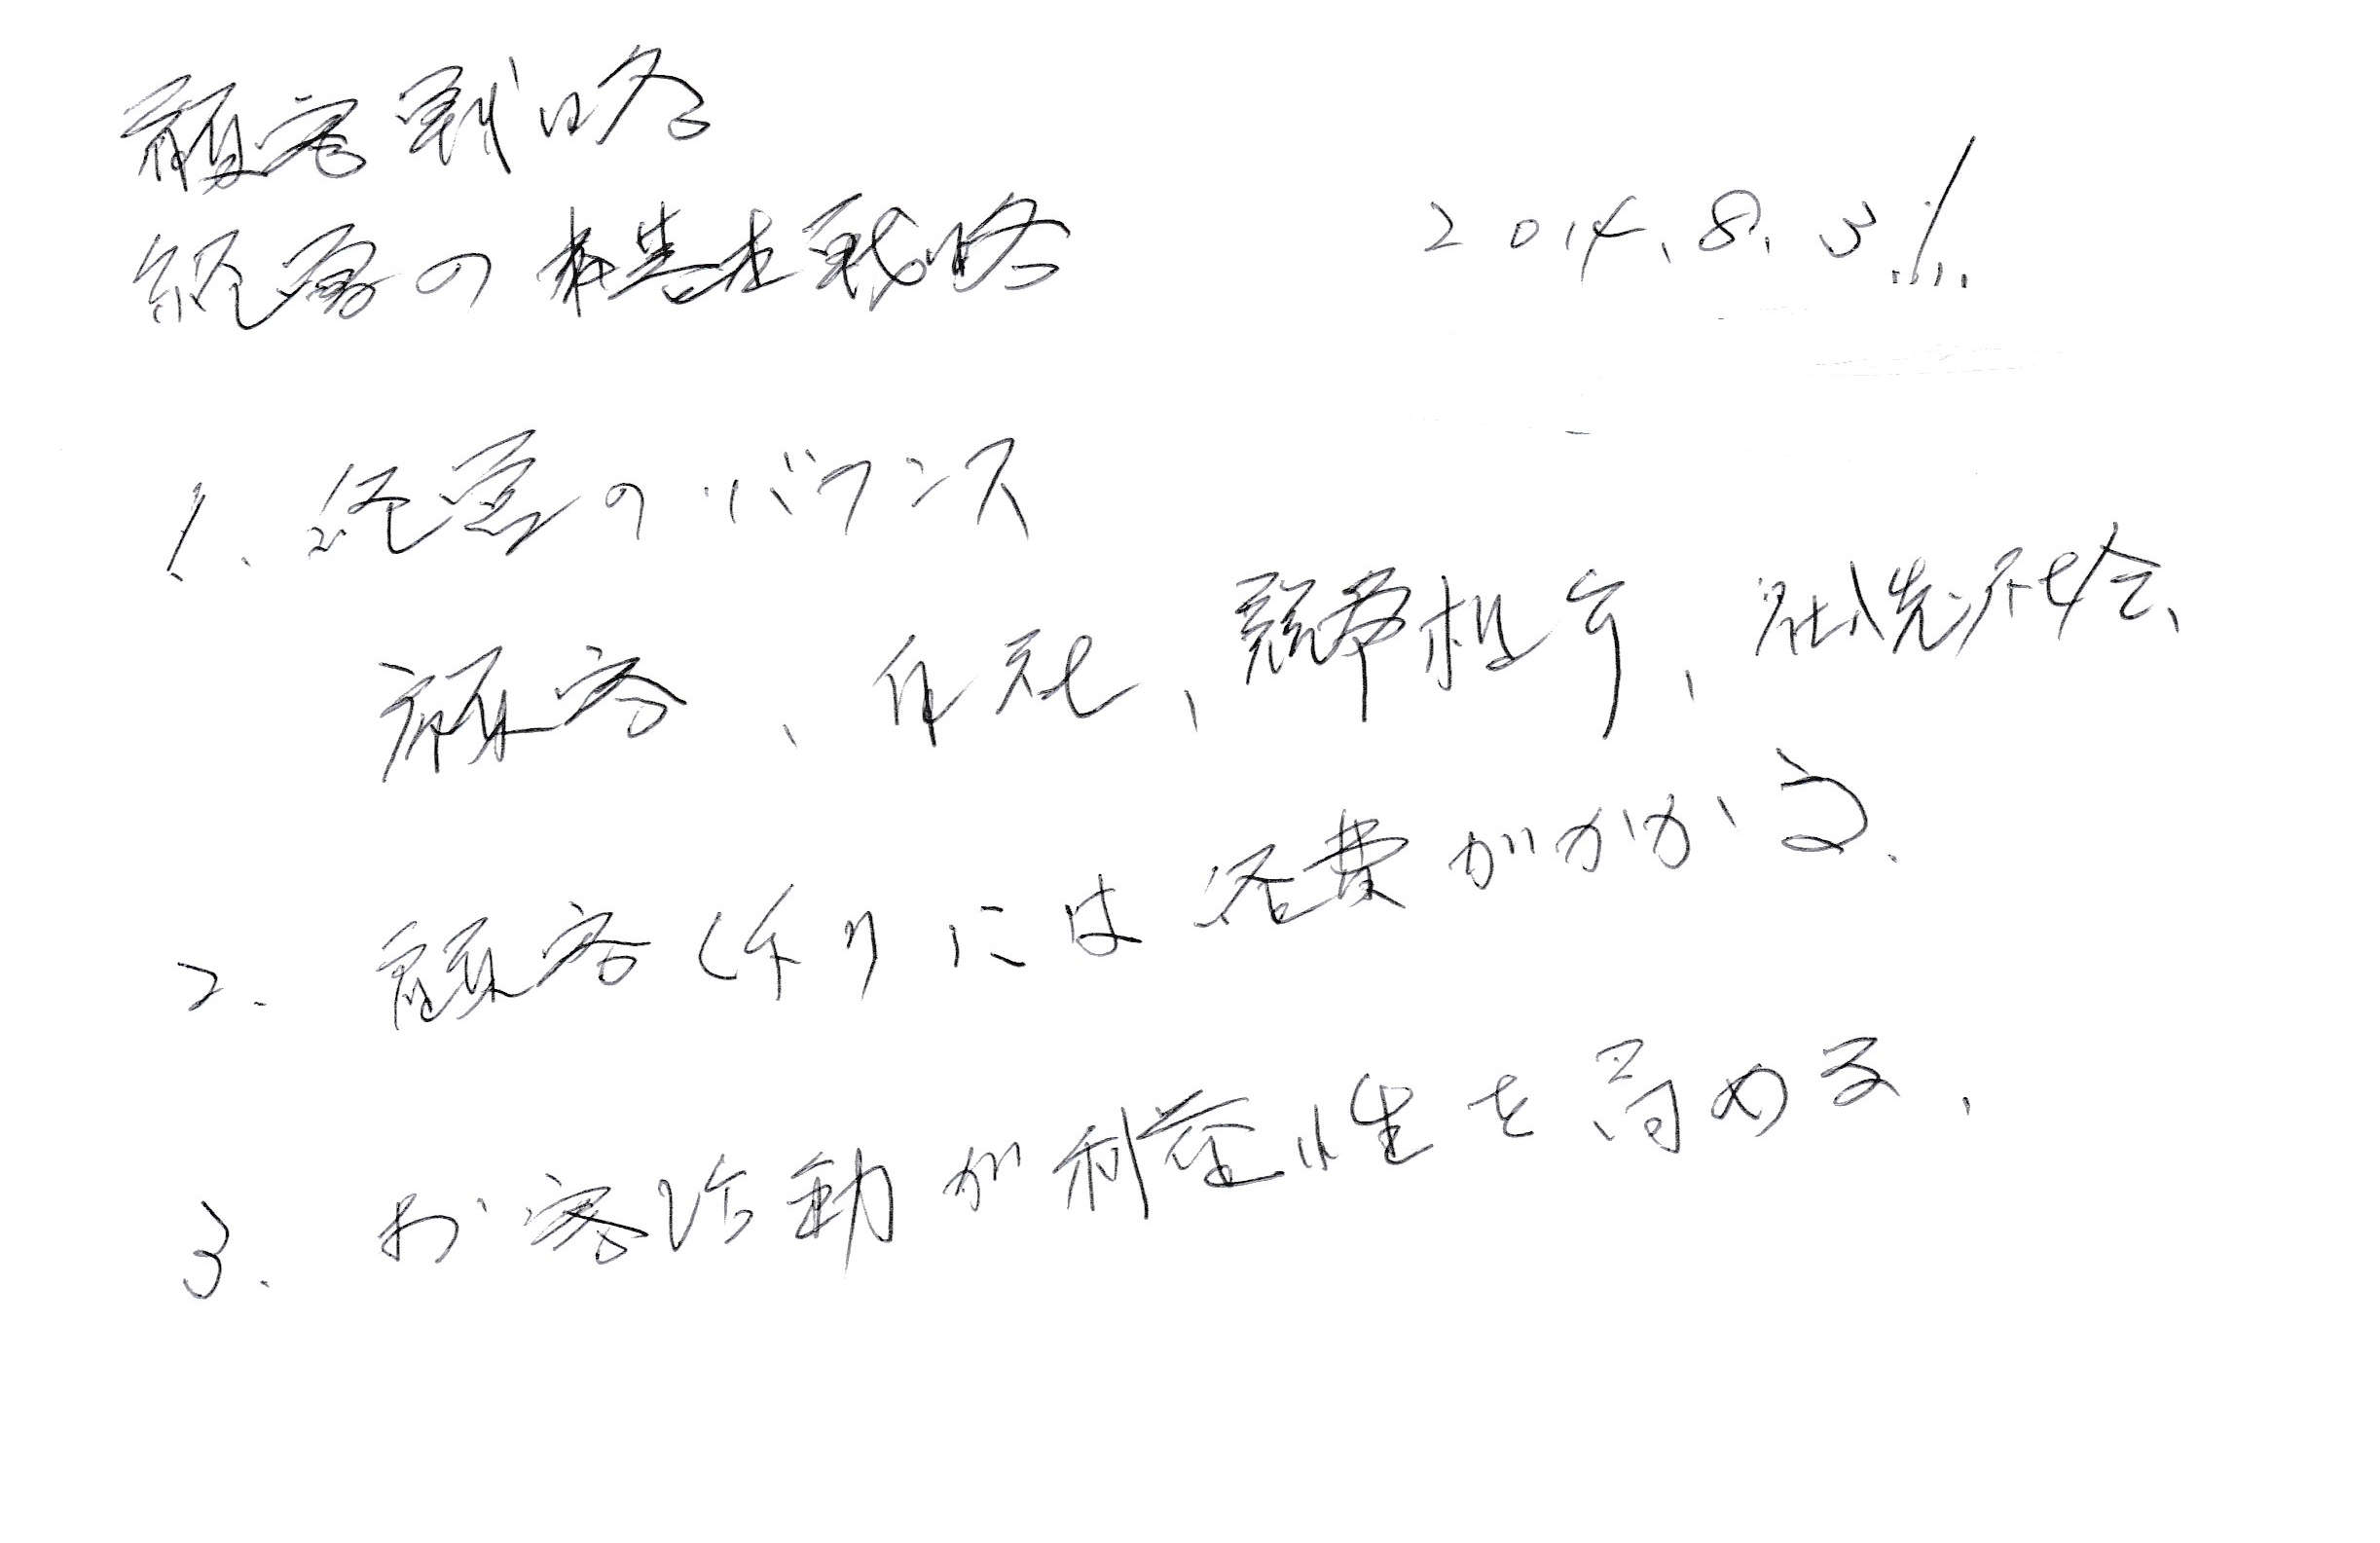 顧客戦略
経営の構造と戦略
2014.8.31
1. 経営のバランス
顧客、自社、競争相手、
2. 顧客(作り)には経費がかかる.
3. お客活動が利益性を高める、